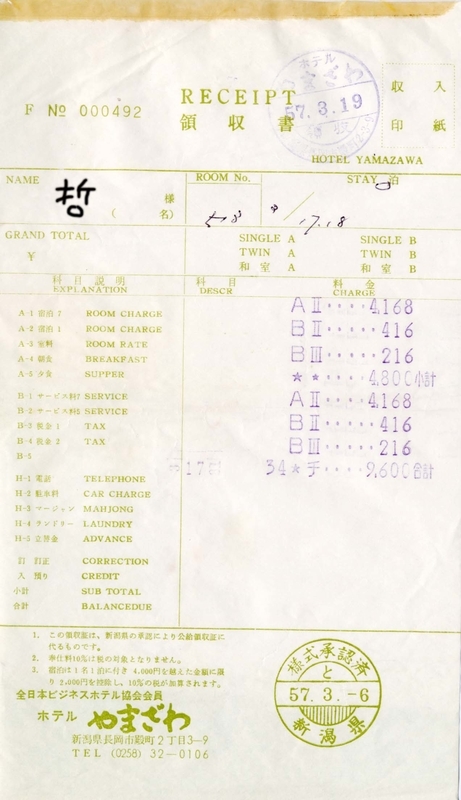 F No 000492
RECEIPT
領収書
ホテル
やまざわ
57.3.19
領収
収入
印紙
HOTEL YAMAZAWA
NAME
哲
様
(名)
ROOM No.
STAY 泊
17.18
GRAND TOTAL
¥
SINGLE A SINGLE B
TWIN A TWIN B
和室 A 和室 B
科目説明 科目 料金
EXPLANATION DESCR CHARGE
A-1 宿泊7 ROOM CHARGE
A-2 宿泊1 ROOM CHARGE
A-3 室料 ROOM RATE
A-4 朝食 BREAKFAST
A-5 夕食 SUPPER
B-1 サービス料7 SERVICE
B-2 サービス料5 SERVICE
B-3 税金1 TAX
B-4 税金2 TAX
B-5
H-1 電話 TELEPHONE
H-2 駐車料 CAR CHARGE
H-3 マージャン MAHJONG
H-4 ランドリー LAUNDRY
H-5 立替金 ADVANCE
訂 訂正 CORRECTION
入 預り CREDIT
小計 SUB TOTAL
合計 BALANCEDUE
AⅡ・・・・・4,168
BⅡ・・・・・416
BⅢ・・・・・216
★★・・・・・4,800小計
AⅡ・・・・・4,168
BⅡ・・・・・416
BⅢ・・・・・216
34★チ・・・・・9,600合計
1. この領収証は、新潟県の承認により公給領収証に
代るものです。
2. 奉仕料10%は税の対象となりません。
3. 宿泊は1名1泊に付き 4,000円を越えた金額に限
り2,000円を控除し、10%の税が加算されます。
全日本ビジネスホテル協会会員
ホテル やまざわ
新潟県長岡市殿町2丁目3-9
TEL (0258) 32-0106
様式承認済
と
57.3.-6
新潟県